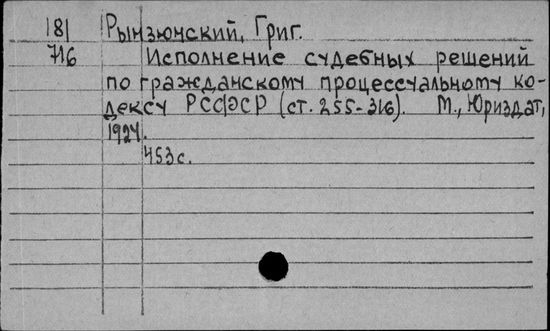 181 Рынзюнский, Григ.
716 Исполнение судебных решений
по гражданскому процессуальному ко-
дексу РСФСР (ст. 255-316). М., Юриздат,
1924.
453с.